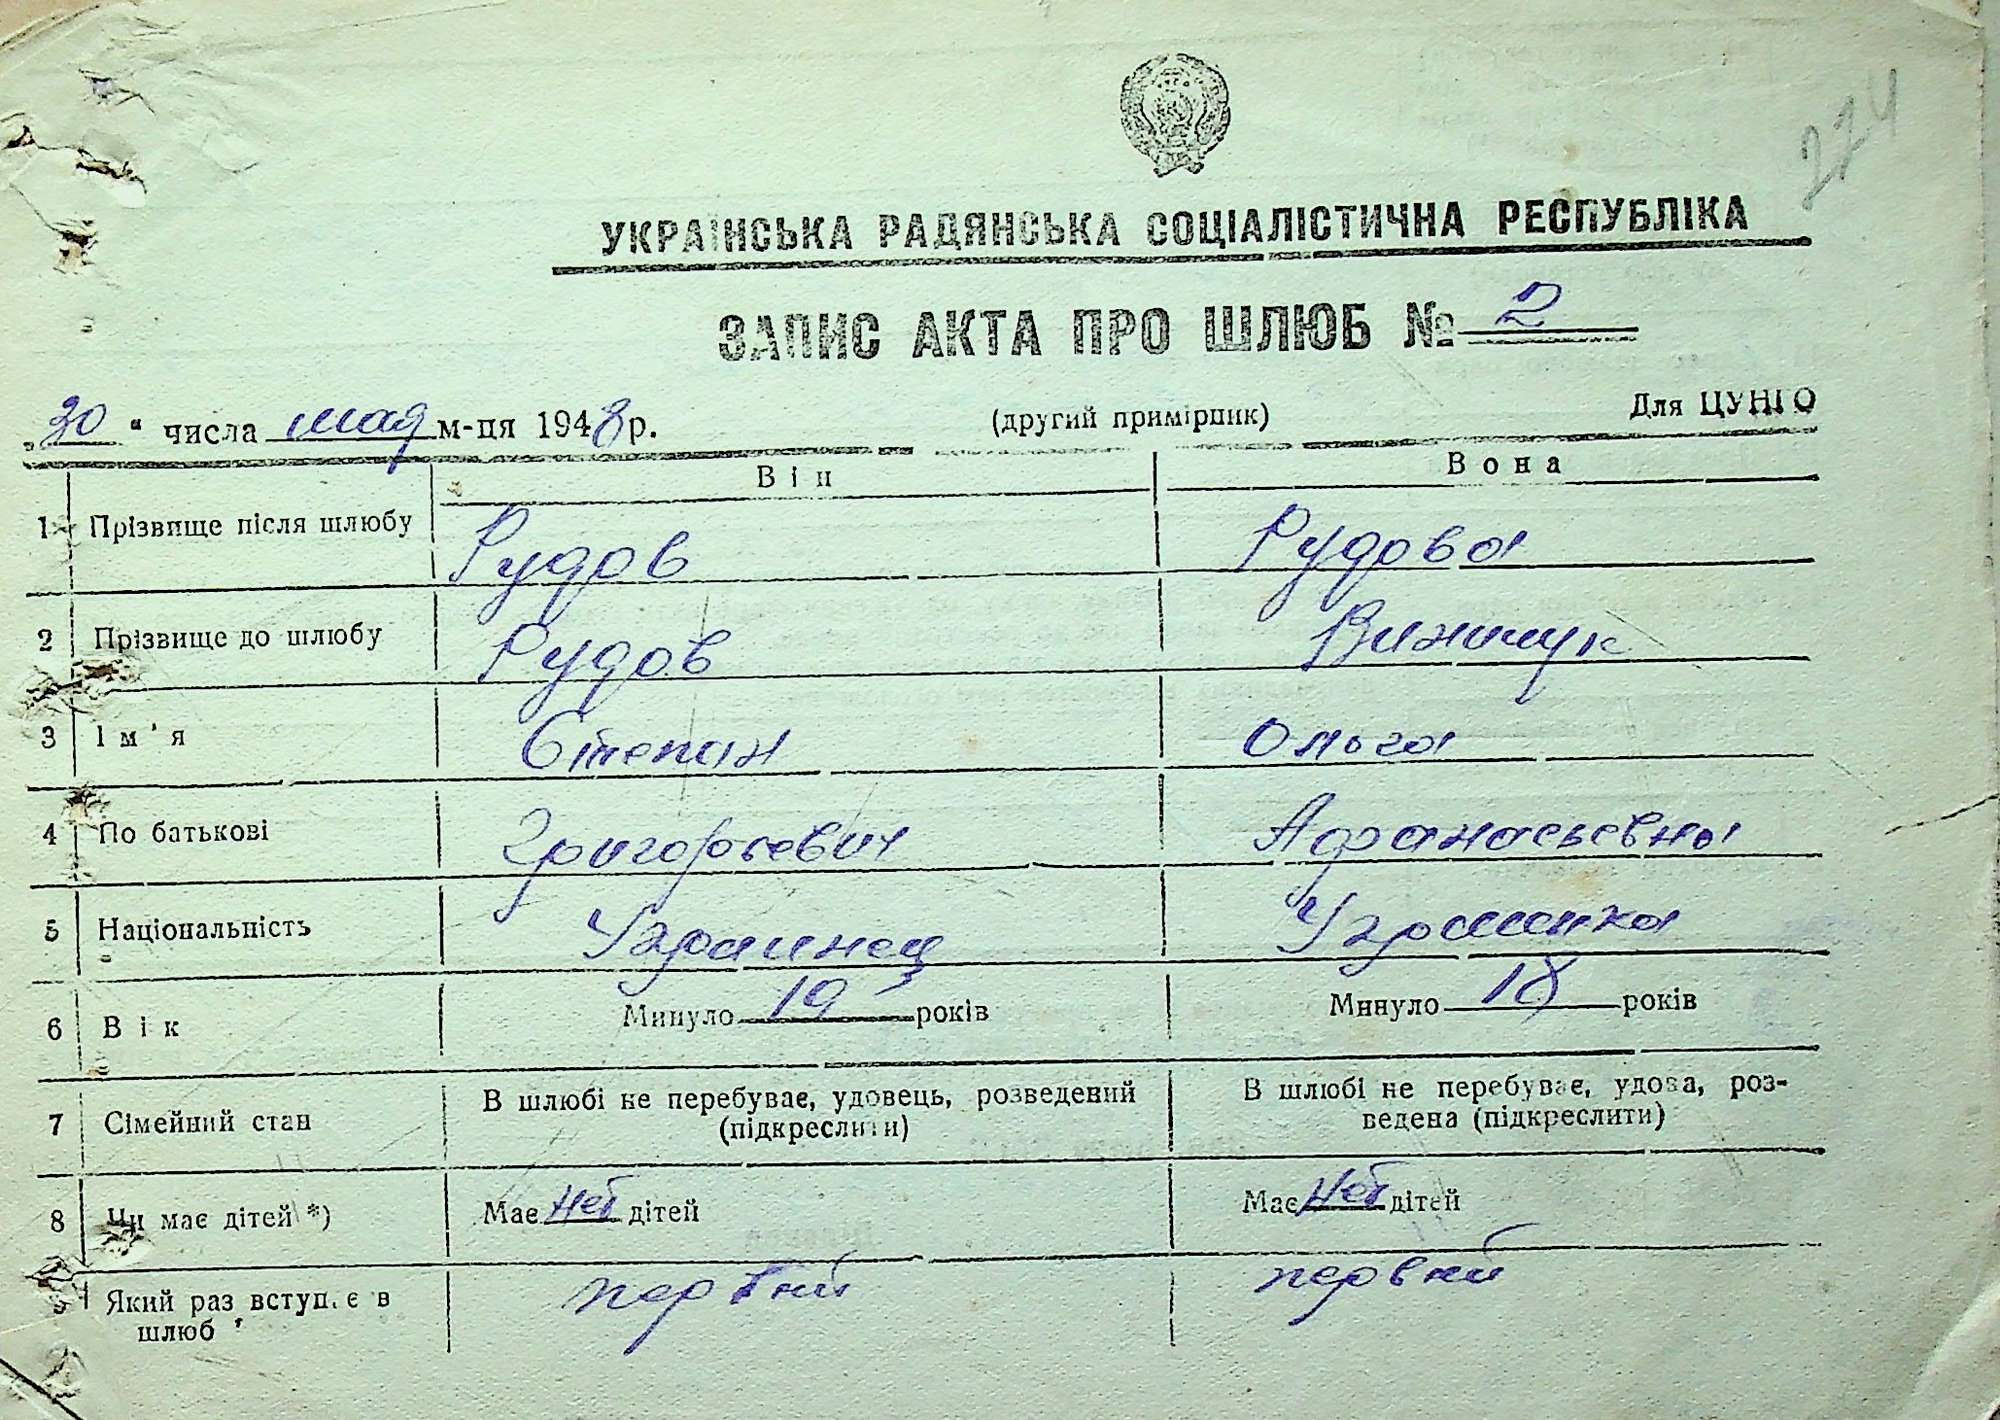 274
УКРАЇНСЬКА РАДЯНСЬКА СОЦІАЛІСТИЧНА РЕСПУБЛІКА
ЗАПИС АКТА ПРО ШЛЮБ № 2
„30" числа мая м-ця 1948 р. (другий примірник) Для ЦУНГО
Він Вона
1 Прізвище після шлюбу Рудов Рудова
2 Прізвище до шлюбу Рудов Винничук
3 Ім'я Степан Ольга
4 По батькові Григорьевич Афанасьевна
5 Національність Украинец Украинка
6 Вік Минуло 19 років Минуло 18 років
7 Сімейний стан В шлюбі не перебуває, удовець, розведений (підкреслити) В шлюбі не перебуває, удова, роз-
ведена (підкреслити)
8 Чи має дітей *) Має нет дітей Має нет дітей
9 Який раз вступає в шлюб первый первый